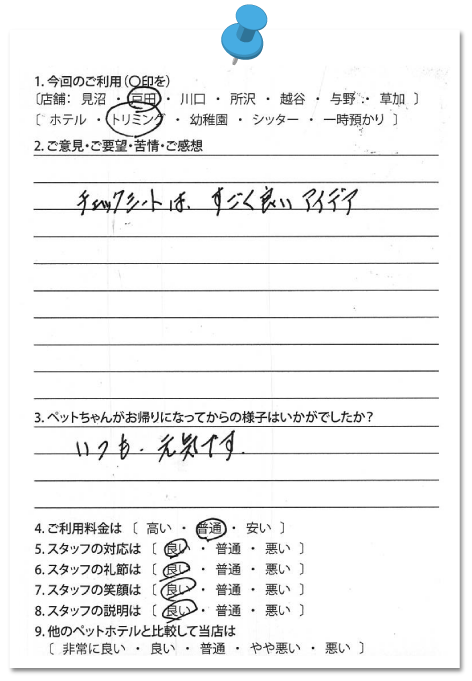 1. 今回のご利用(〇印を)
〔店舗： 見沼 ・ 戸田 ・ 川口 ・ 所沢 ・ 越谷 ・ 与野 ・ 草加 〕
〔 ホテル ・ トリミング ・ 幼稚園 ・ シッター ・ 一時預かり 〕
2. ご意見・ご要望・苦情・ご感想
チェックシートは、すごく良いアイデア
3. ペットちゃんがお帰りになってからの様子はいかがでしたか？
いつも、元気です.
4. ご利用料金は 〔 高い ・ 普通 ・ 安い 〕
5. スタッフの対応は 〔 良い ・ 普通 ・ 悪い 〕
6. スタッフの礼節は 〔 良い ・ 普通 ・ 悪い 〕
7. スタッフの笑顔は 〔 良い ・ 普通 ・ 悪い 〕
8. スタッフの説明は 〔 良い ・ 普通 ・ 悪い 〕
9. 他のペットホテルと比較して当店は
〔 非常に良い ・ 良い ・ 普通 ・ やや悪い ・ 悪い 〕